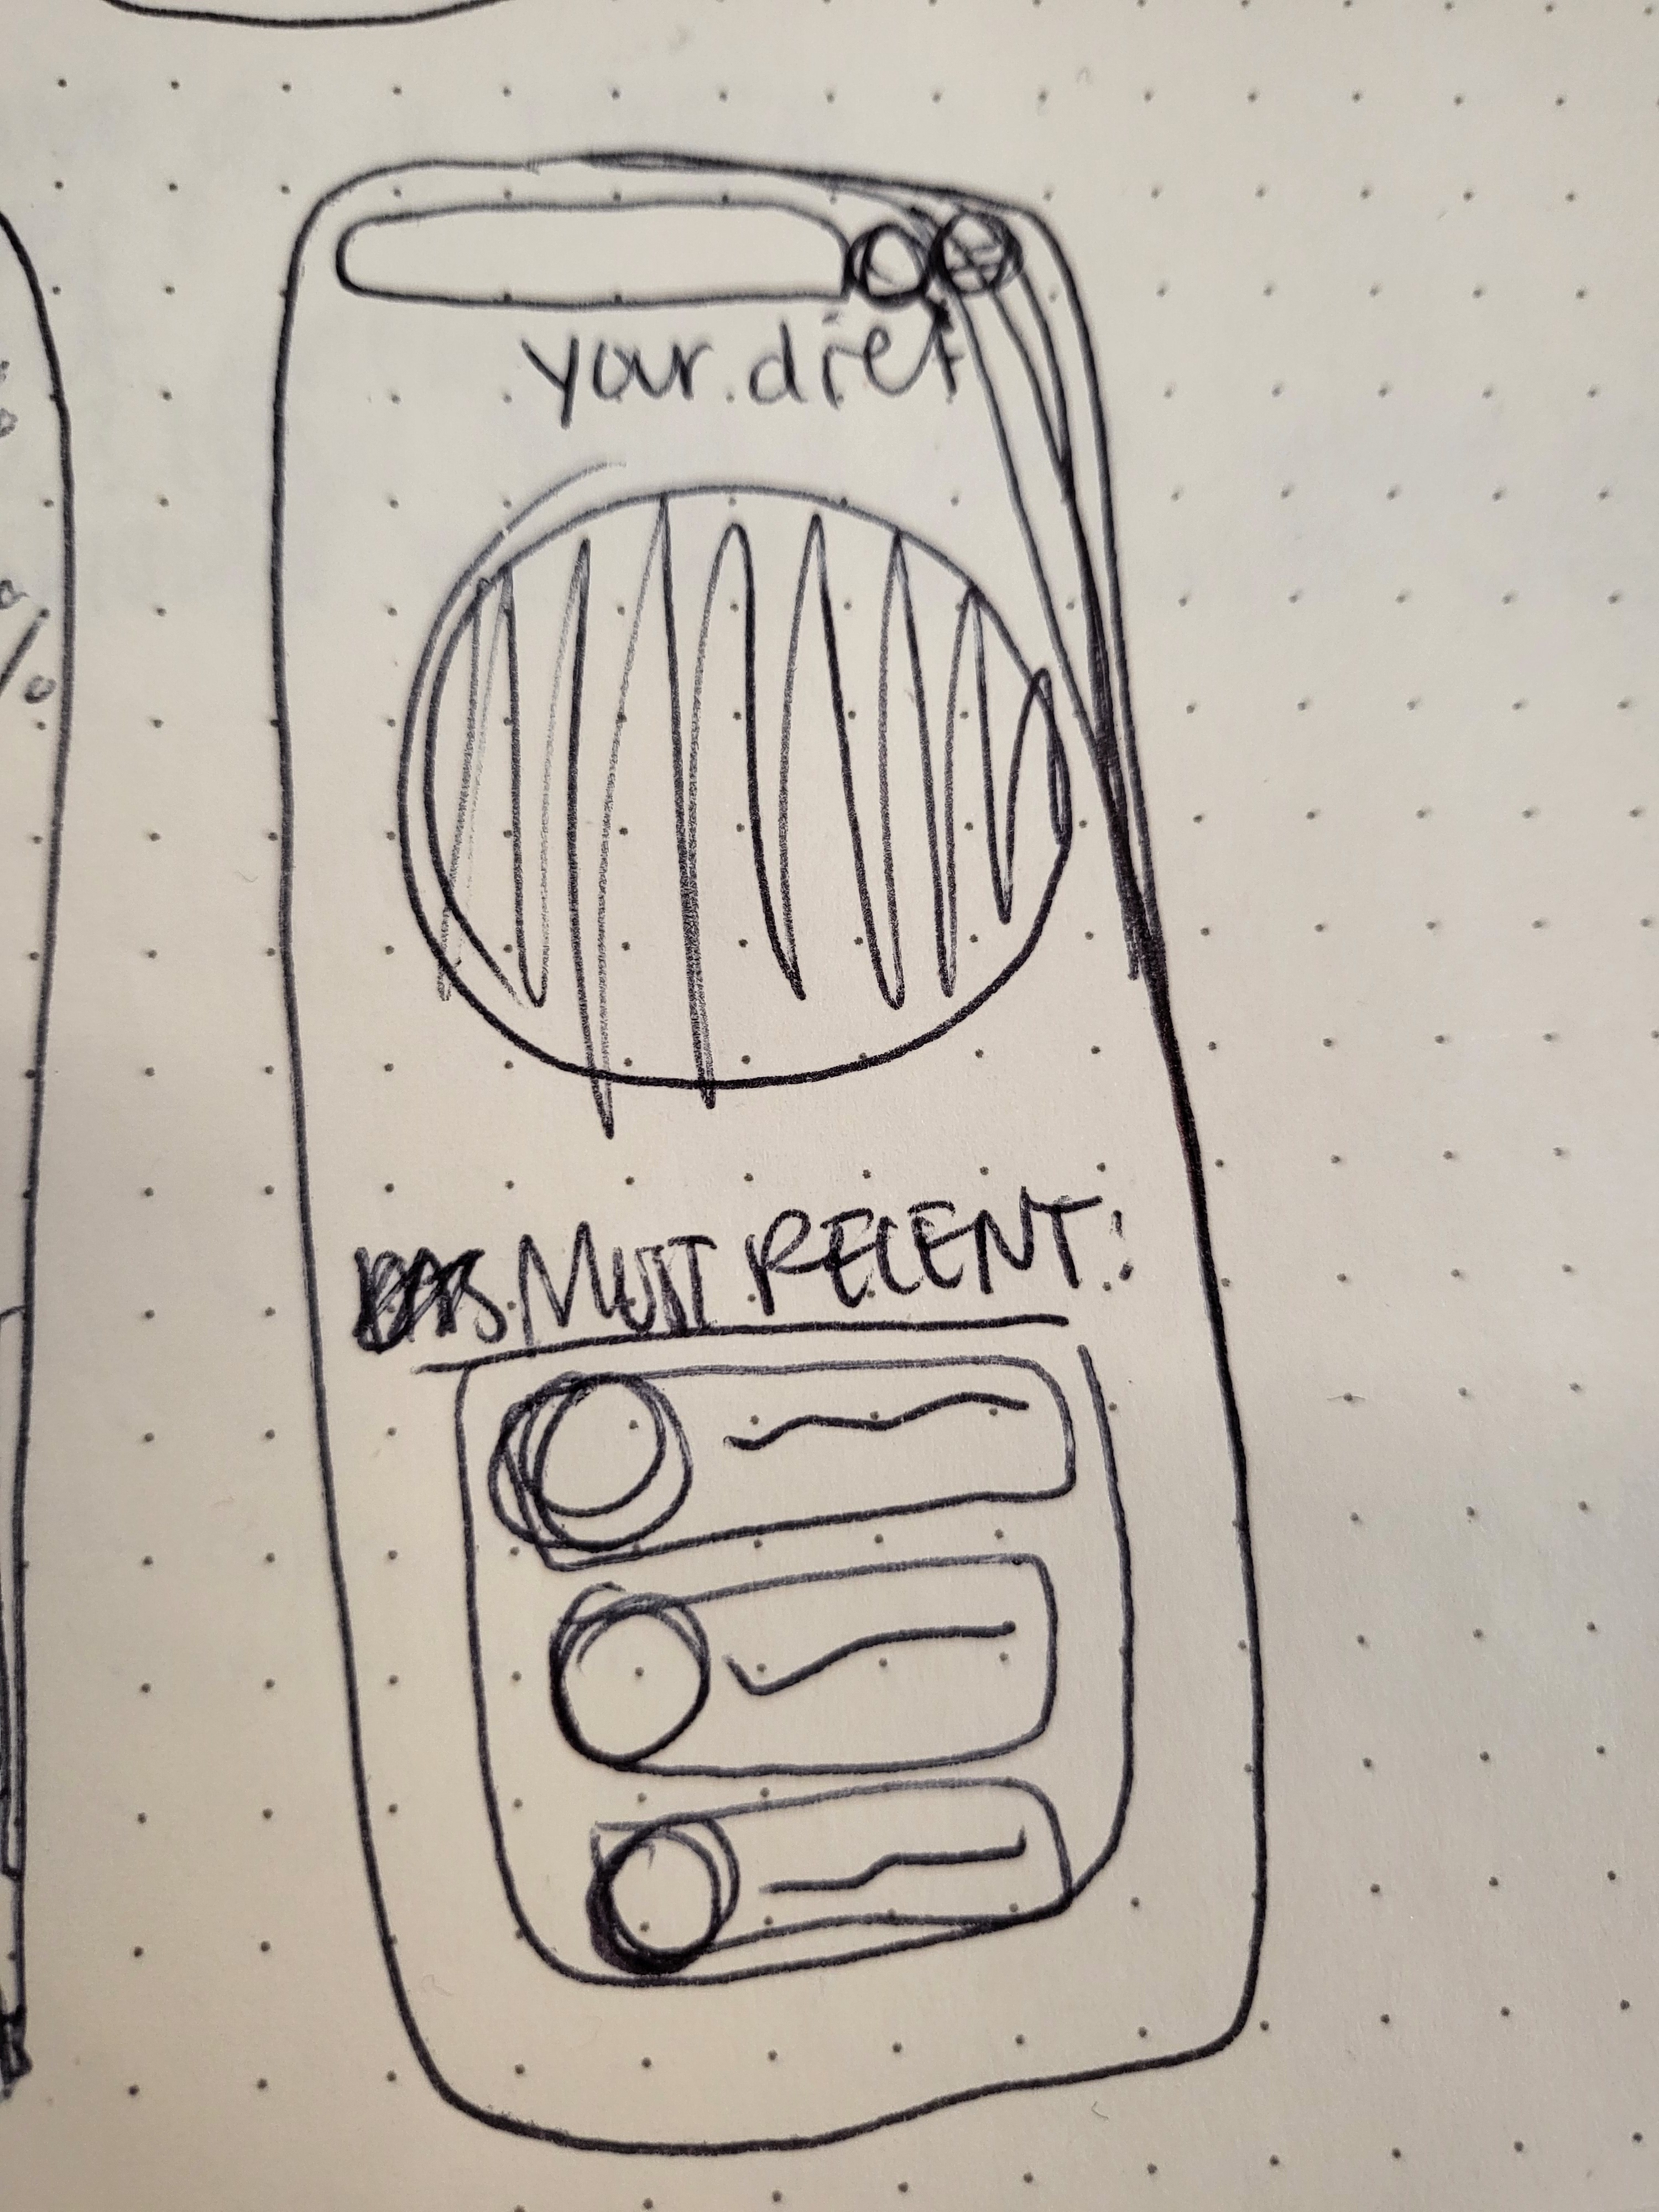 your diet
MOST RECENT:
%